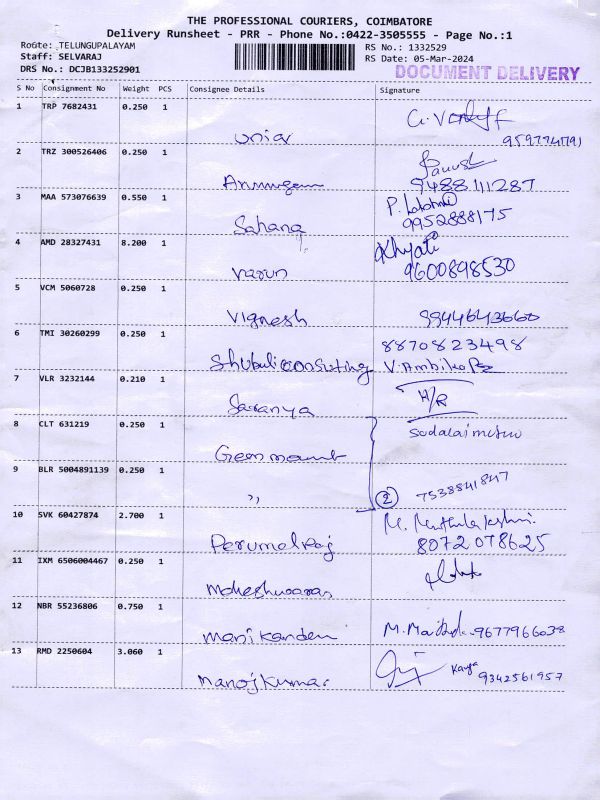 THE PROFESSIONAL COURIERS, COIMBATORE
Delivery Runsheet - PRR - Phone No.:0422-3505555 - Page No.:1
Route: TELUNGUPALAYAM
Staff: SELVARAJ
DRS No.: DCJB133252901
RS No.: 1332529
RS Date: 05-Mar-2024
DOCUMENT DELIVERY
S No Consignment No Weight PCS Consignee Details Signature
1 TRP 7682431 0.250 1
2 TRZ 300526406 0.250 1
Arumugam 9488111287
3 MAA 573076639 0.550 1 P. Lakshmi
Sahana 9952888175
4 AMD 28327431 8.200 1 Khyati
Varun 9600898530
5 VCM 5060728 0.250 1
Vignesh 9944643660
6 TMI 30260299 0.250 1 8870823498
Shubali consulting V. Ambika
7 VLR 3232144 0.210 1 H/R
Saranya
8 CLT 631219 0.250 1 Sudalaimuthu
Green mount
9 BLR 5004891139 0.250 1
,, 2 7538841847
10 SVK 60427874 2.700 1 M. Muthulakshmi.
Perumalraj 8072078625
11 IXM 6506004467 0.250 1
Maheshwaran
12 NBR 55236806 0.750 1
Manikanden 9677966038
13 RMD 2250604 3.060 1
Manojkumar Kavya 9342561957